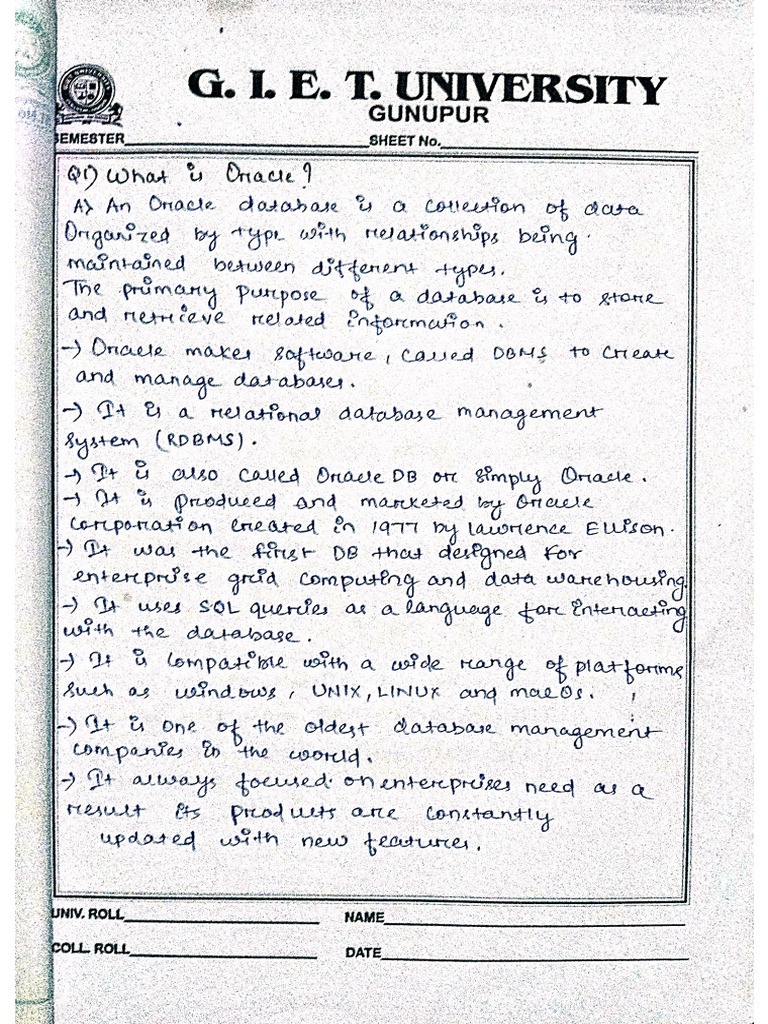 G. I. E. T. UNIVERSITY
GUNUPUR
SEMESTER SHEET No.
Q1) What is Oracle?
A) An Oracle database is a collection of data
Organized by type with relationships being
maintained between different types.
The primary purpose of a database is to store
and retrieve related information.
→ Oracle makes software, called DBMS to create
and manage databases.
→ It is a relational database management
system (RDBMS).
→ It is also called Oracle DB or simply Oracle.
→ It is produced and marketed by Oracle
Corporation created in 1977 by Lawrence Ellison.
→ It was the first DB that designed for
enterprise grid computing and data warehousing.
→ It uses SQL queries as a language for interacting
with the database.
→ It is compatible with a wide range of platforms
such as windows, UNIX, LINUX and macOs.
→ It is one of the oldest database management
companies in the world.
→ It always focused on enterprises need as a
result its products are constantly
updated with new features.
UNIV. ROLL NAME
COLL. ROLL DATE